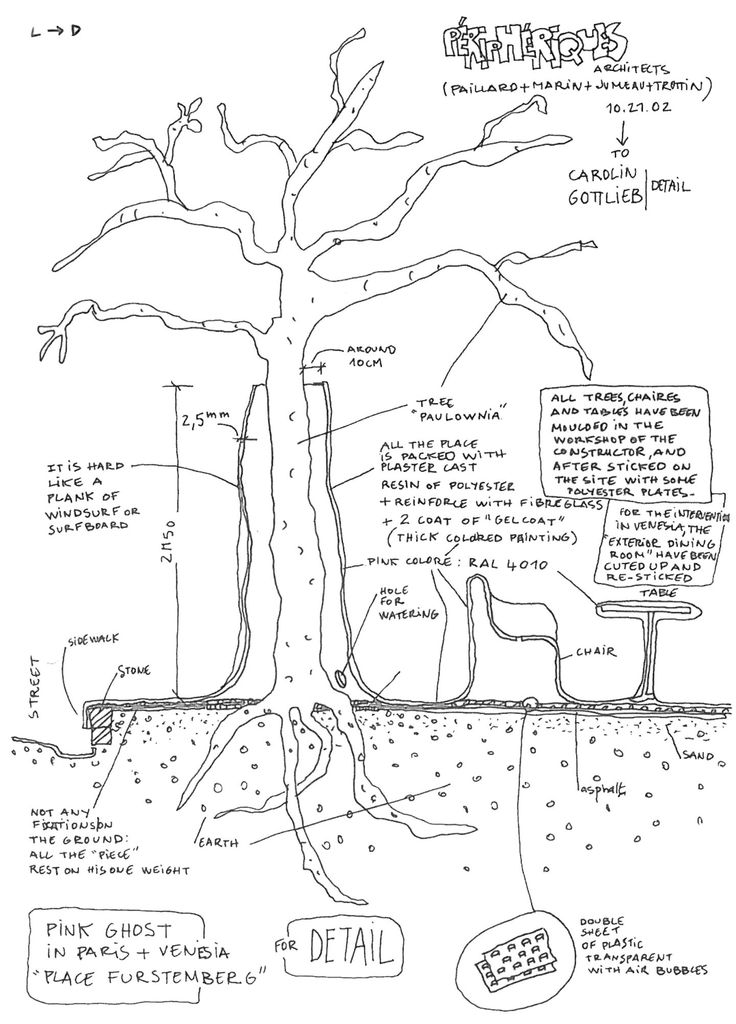 L → D
PÉRIPHÉRIQUES
ARCHITECTS
(PAILLARD+MARIN+JUMEAU+TROTTIN)
10.21.02
TO
CAROLIN
GOTTLIEB
DETAIL
AROUND
10CM
TREE
"PAULOWNIA"
2,5mm
2M50
IT IS HARD
LIKE A
PLANK OF
WINDSURF OR
SURFBOARD
ALL THE PLACE
IS PACKED WITH
PLASTER CAST
RESIN OF POLYESTER
+ REINFORCE WITH FIBREGLASS
+ 2 COAT OF "GELCOAT"
(THICK COLORED PAINTING)
PINK COLORE: RAL 4010
ALL TREES, CHAIRES
AND TABLES HAVE BEEN
MOULDED IN THE
WORKSHOP OF THE
CONSTRUCTOR, AND
AFTER STICKED ON
THE SITE WITH SOME
POLYESTER PLATES-
FOR THE INTERVENTION
IN VENESIA, THE
"EXTERIOR DINING
ROOM" HAVE BEEN
CUTED UP AND
RE-STICKED
TABLE
HOLE
FOR
WATERING
CHAIR
SIDEWALK
STONE
STREET
SAND
asphalt
NOT ANY
FIXATIONS ON
THE GROUND:
ALL THE "PIECE"
REST ON HIS ONE WEIGHT
EARTH
PINK GHOST
IN PARIS + VENESIA
"PLACE FURSTEMBERG"
FOR
DETAIL
DOUBLE
SHEET
OF PLASTIC
TRANSPARENT
WITH AIR BUBBLES